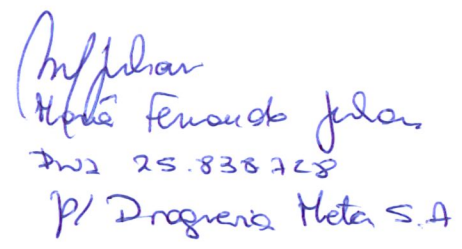 María Fernanda Julian
DNI 25.838.728
p/ Drogueria Meta S.A